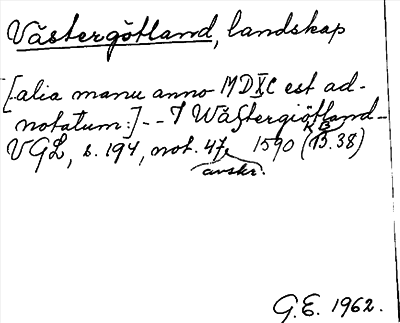 Västergötland, landskap
[: alia manu anno MDXC est ad-
notatum:] -- I Wästergiötland -
VGL, s. 194, not. 47, 1590 (B.38)
KB
avskr.
G.E. 1962.